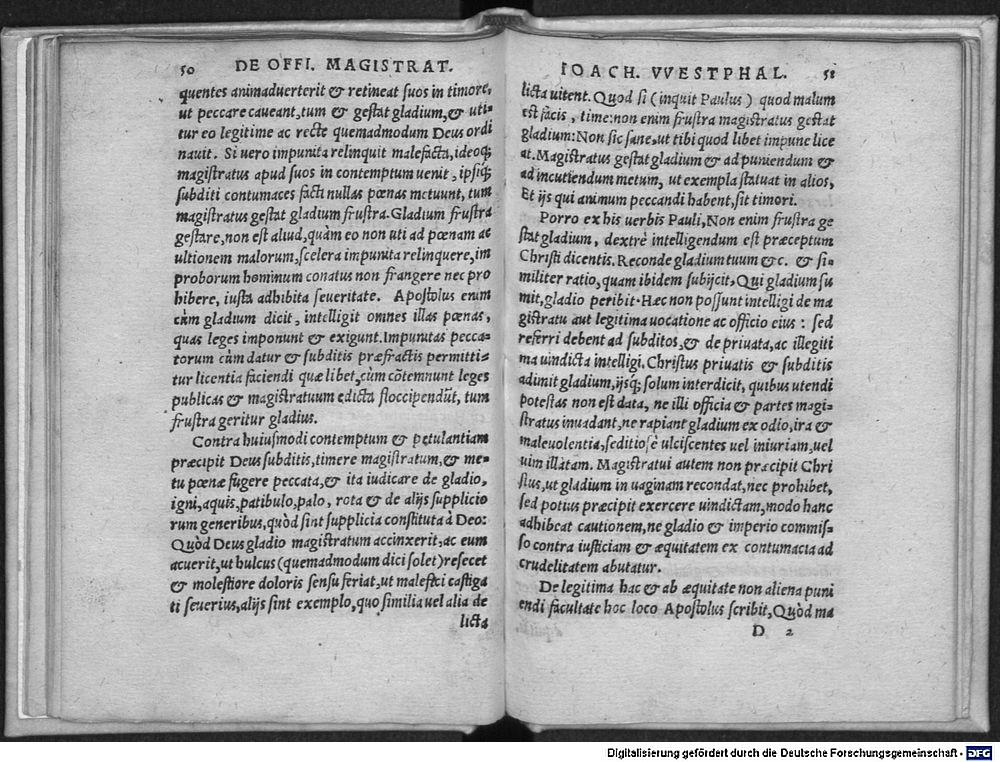 50 DE OFFI. MAGISTRAT.
quentes animaduerterit & retineat suos in timore,
ut peccare caueant, tum & gestat gladium, & uti⸗
tur eo legitime ac recte quemadmodum Deus ordi
nauit. Si uero impunita relinquit malefacta, ideoq;
magistratus apud suos in contemptum uenit, ipsiq;
subditi contumaces facti nullas pœnas metuunt, tum
magistratus gestat gladium frustra. Gladium frustra
gestare, non est aliud, quàm eo non uti ad pœnam ac
ultionem malorum, scelera impunita relinquere, im
proborum hominum conatus non frangere nec pro
hibere, iusta adhibita seueritate. Apostolus enim
cùm gladium dicit, intelligit omnes illas pœnas,
quas leges imponunt & exigunt. Impunitas pecca⸗
torum cùm datur & subditis præfractis permitti⸗
tur licentia faciendi quæ libet, cùm cõtemnunt leges
publicas & magistratuum edicta floccipendũt, tum
frustra geritur gladius.
Contra huiusmodi contemptum & petulantiam
præcipit Deus subditis, timere magistratum, & me⸗
tu pœnæ fugere peccata, & ita iudicare de gladio,
igni, aquis, patibulo, palo, rota & de alijs supplicio
rum generibus, quòd sint supplicia constituta à Deo:
Quòd Deus gladio magistratum accinxerit, ac eum
acuerit, ut hulcus (quemadmodum dici solet) resecet
& molestiore doloris sensu feriat, ut malefici castiga
ti seuerius, alijs sint exemplo, quo similia uel alia de
licta
IOACH. VVESTPHAL. 51
licta uitent. Quod si (inquit Paulus) quod malum
est facis, time: non enim frustra magistratus gestat
gladium: Non sic sane, ut tibi quod libet impune lice
at. Magistratus gestat gladium & ad puniendum &
ad incutiendum metum, ut exempla statuat in alios,
Et ijs qui animum peccandi habent, sit timori.
Porro ex his uerbis Pauli, Non enim frustra ge
stat gladium, dextrè intelligendum est præceptum
Christi dicentis. Reconde gladium tuum &c. & si⸗
militer ratio, quam ibidem subijcit, Qui gladium su
mit, gladio peribit. Hæc non possunt intelligi de ma
gistratu aut legitima uocatione ac officio eius: sed
referri debent ad subditos, & de priuata, ac illegiti
ma uindicta intelligi. Christus priuatis & subditis
adimit gladium, ijsq; solum interdicit, quibus utendi
potestas non est data, ne illi officia & partes magi⸗
stratus inuadant, ne rapiant gladium ex odio, ira &
maleuolentia, seditiosè ulciscentes uel iniuriam, uel
uim illatam. Magistratui autem non præcipit Chri
stus, ut gladium in uaginam recondat, nec prohibet,
sed potius præcipit exercere uindictam, modo hanc
adhibeat cautionem, ne gladio & imperio commis⸗
so contra iusticiam & æquitatem ex contumacia ad
crudelitatem abutatur.
De legitima hac & ab æquitate non aliena puni
endi facultate hoc loco Apostolus scribit, Quòd ma
D 2
Digitalisierung gefördert durch die Deutsche Forschungsgemeinschaft - DFG